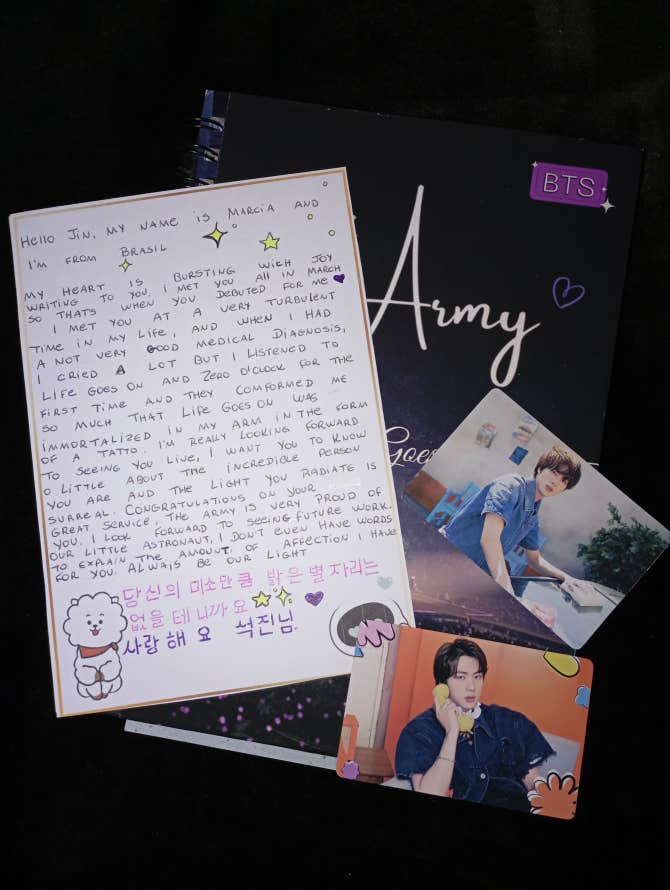 Hello Jin, MY NAME iS MARCiA AND
I'M FROM BRASIL
MY HEART IS BURSTING WiCH JOY
WRITING TO YOU. I MET YOU All IN MARCH
SO THATS WHEN YOU DEBUTED FOR ME
I MET YOU AT A VERY TURBULENT
TIME IN MY LIFE, AND WHEN I HAD
A NOT VERY GOOD MEDICAL DIAGNOSIS,
I CRIED A LOT BUT I LISTENED TO
LIFE GOES ON AND ZERO O'CLOCK FOR THE
FIRST TIME AND THEY COMFORMED ME
SO MUCH THAT LIFE GOES ON WAS
IMMORTALIZED IN MY ARM IN THE FORM
OF A TATTO. I'M REALLY LOOKING FORWARD
TO SEEING YOU LIVE, I WANT YOU TO KNOW
O LITTLE ABOUT THE INCREDIBLE PERSON
YOU ARE AND THE LIGHT YOU RADIATE IS
SURREAL. CONGRATULATIONS ON YOUR
GREAT SERVICE, THE ARMY IS VERY PROUD OF
YOU. I LOOK FORWARD TO SEEING FUTURE WORK.
OUR LITTLE ASTRONAUT, I DON'T EVEN HAVE WORDS
TO EXPLAIN THE AMOUNT OF AFFECTION I HAVE
FOR YOU. ALWAIS BE OUR LIGHT
당신의 미소만큼 밝은 별자리는
없을 테니까요
사랑해요 석진님
BTS
Army
Goes